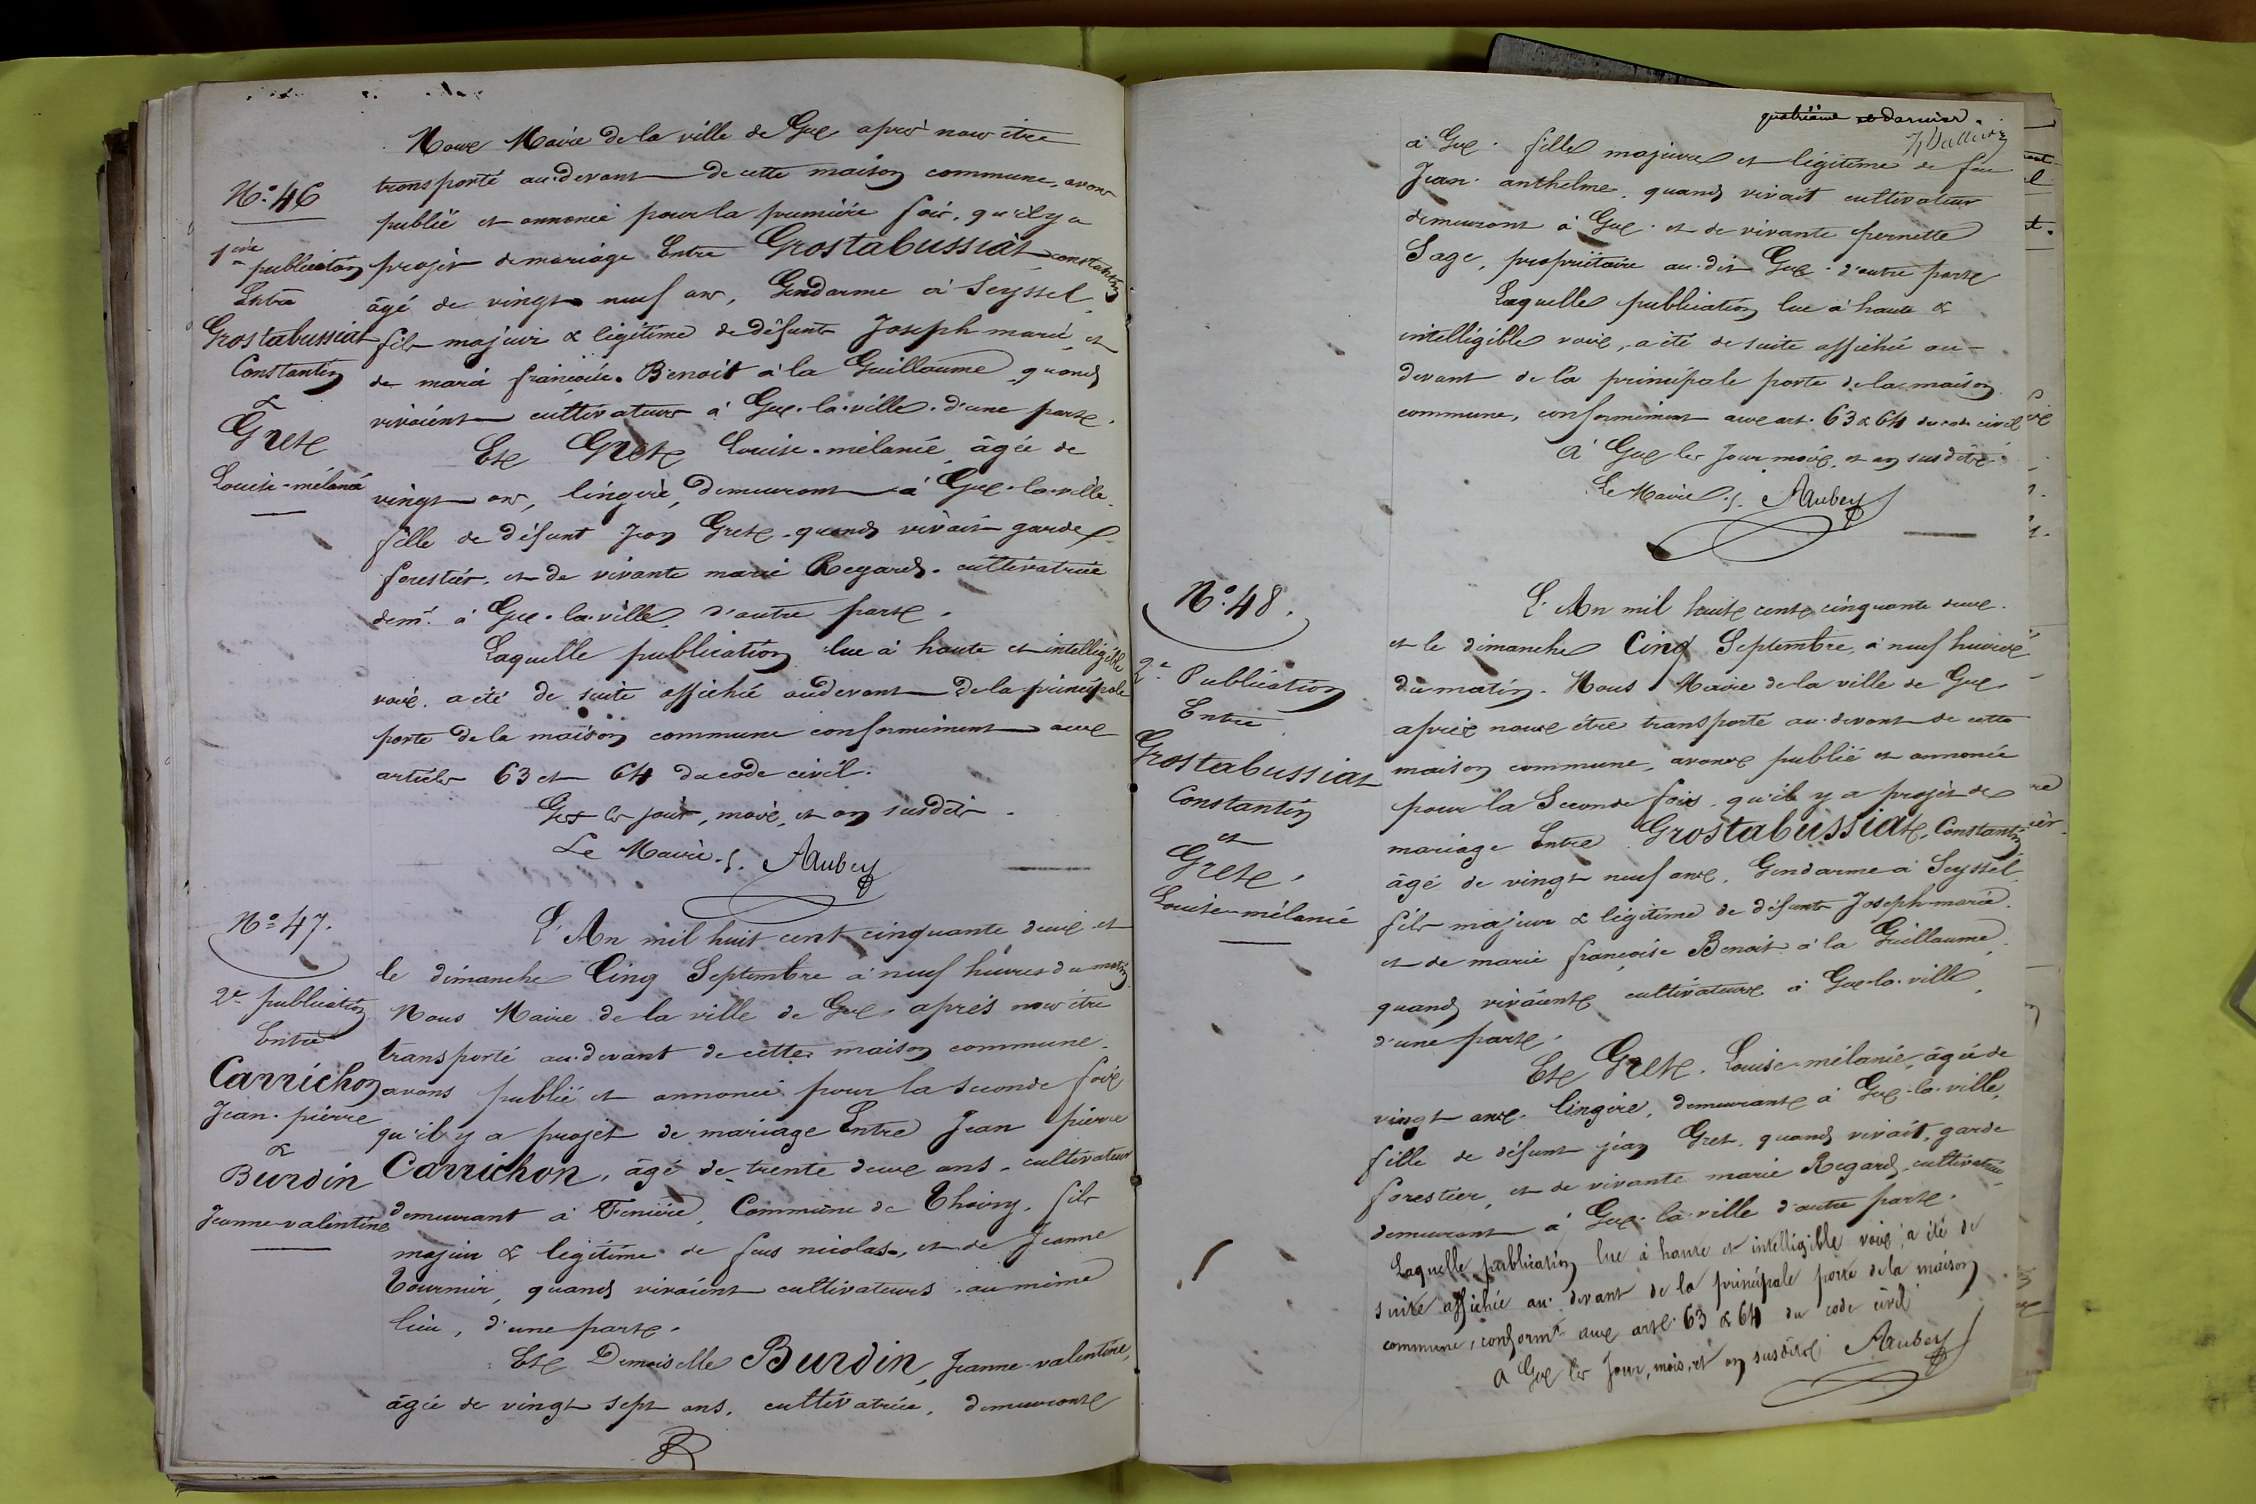 Nous Maire de la ville de Gex après nous être
N.° 46
transporté au-devant de cette maison commune, avons
publié et annoncé pour la première fois, qu'il y a
1ère publication
projet de mariage Entre Grostabussiat constantin
Entre
âgé de vingt neuf ans, Gendarme à Seyssel,
Grostabussiat
fils majeur & légitime de défunts Joseph marie, et
Constantin
de marie françoise Benoit à la Guillaume, quand
&
vivaient cultivateurs à Gex-la-ville. d'une part.
Gret
Et Gret Louise-mélanie, âgée de
Louise-mélanie
vingt ans, lingère, demeurant à Gex-la-ville.
fille de défunt Jean Gret quand vivait garde
forestier, et de vivante marie Regard. cultivatrice
demt. à Gex-la-ville, d'autre part.
Laquelle publication lue à haute et intelligible
voix, a été de suite affichée audevant de la principale
porte de la maison commune conformément aux
articles 63 et 64 du code civil.
Gex les jour, mois, et an susdits.
Le Maire. S. Aubey
N° 47.
L'An mil huit cent cinquante deux et
le dimanche Cinq Septembre à neuf heures du matin
2e publication
Nous Maire de la ville de Gex, après nous être
Entre
transporté au-devant de cette maison commune.
Carrichon
avons publié et annoncé pour la seconde fois
Jean-pierre
qu'il y a projet de mariage Entre Jean pierre
&
Burdin
Carrichon, âgé de trente deux ans, cultivateur
Jeanne-valentine
demeurant à Fenière, Commune de Thoiry, fils
majeur & légitime de feus nicolas, et de Jeanne
Tournier, quand vivaient cultivateurs au même
lieu, d'une part.
Et Demoiselle Burdin, Jeanne-valentine,
âgée de vingt sept ans, cultivatrice, demeurant
quatrième et dernier.
à Gex. fille majeure et légitime de feu
Jean-anthelme, quand vivait cultivateur
demeurant à Gex. et de vivante pernette
Sage, propriétaire au-dit Gex. d'autre part
Laquelle publication lue à haute &
intelligible voix, a été de suite affichée au-
devant de la principale porte de la maison
commune, conformément aux art. 63 & 64 du code civil
A Gex les Jour mois, et an susdits
Le Maire. S. Aubey
N.° 48.
L'An mil huit cent cinquante deux.
et le dimanche Cinq Septembre, à neuf heures
2e Publication
du matin. Nous Maire de la ville de Gex,
Entre
après nous être transporté au-devant de cette
Grostabussiat
maison commune, avons publié et annoncé
Constantin
pour la Seconde fois, qu'il y a projet de
et
mariage Entre Grostabussiat, Constantin
Gret,
âgé de vingt neuf ans, Gendarme à Seyssel.
Louise-mélanie
fils majeur & légitime de défunts Joseph-marie.
et de marie françoise Benoit à la Guillaume,
quand vivaient cultivateurs à Gex-la-ville,
d'une part.
Et Gret. Louise-mélanie, âgée de
vingt ans. lingère, demeurant à Gex-la-ville,
fille de défunt jean Gret, quand vivait, garde
forestier, et de vivante marie Regard, cultivatrice
demeurant à Gex-la-ville d'autre part.
Laquelle publication lue à haute et intelligible voix, a été de
suite affichée au-devant de la principale porte de la maison
commune, conformt. aux art. 63 & 64 du code civil
A Gex les Jour, mois, et an susdits. Aubey